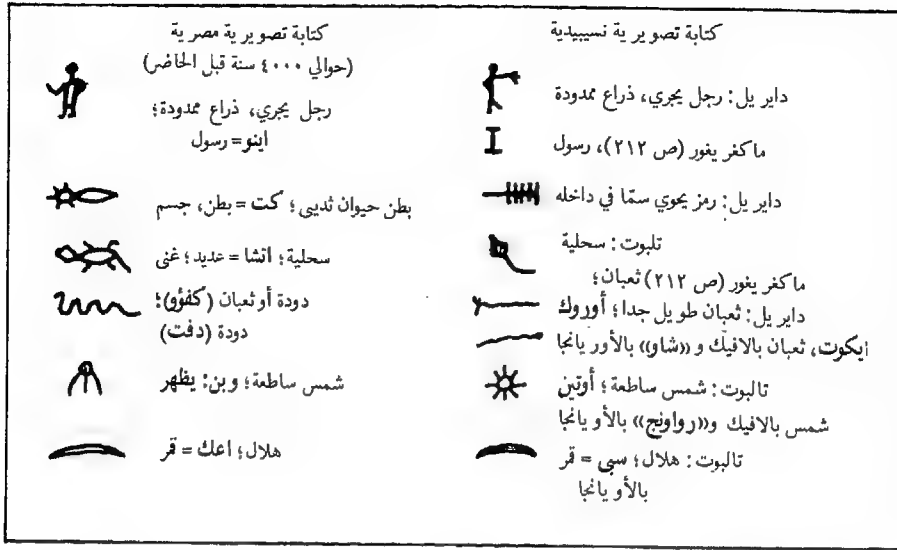 كتابة تصويرية نسيبيدية
دايريل: رجل يجري، ذراع ممدودة
ماكغريغور (ص ٢١٢)، رسول
دايريل: رمز يحوي سمّا في داخله
تلبوت: سحلية
ماكغريغور (ص ٢١٢) ثعبان؛
دايريل: ثعبان طويل جدا؛ أوروك
ايكوت، ثعبان بالافيك و«شاو» بالأوريانجا
تالبوت: شمس ساطعة؛ أوتين
شمس بالافيك و«رواونج» بالأويانجا
تالبوت: هلال؛ سبى = قمر
بالأويانجا
كتابة تصويرية مصرية
(حوالي ٤٠٠٠ سنة قبل الحاضر)
رجل يجري، ذراع ممدودة؛
اينو= رسول
بطن حيوان ثديى؛ كت = بطن، جسم
سحلية؛ اتشا = عديد؛ غنى
دودة أو ثعبان (كفؤو)؛
دودة (دفت)
شمس ساطعة؛ وبن: يظهر
هلال؛ اعك = قمر